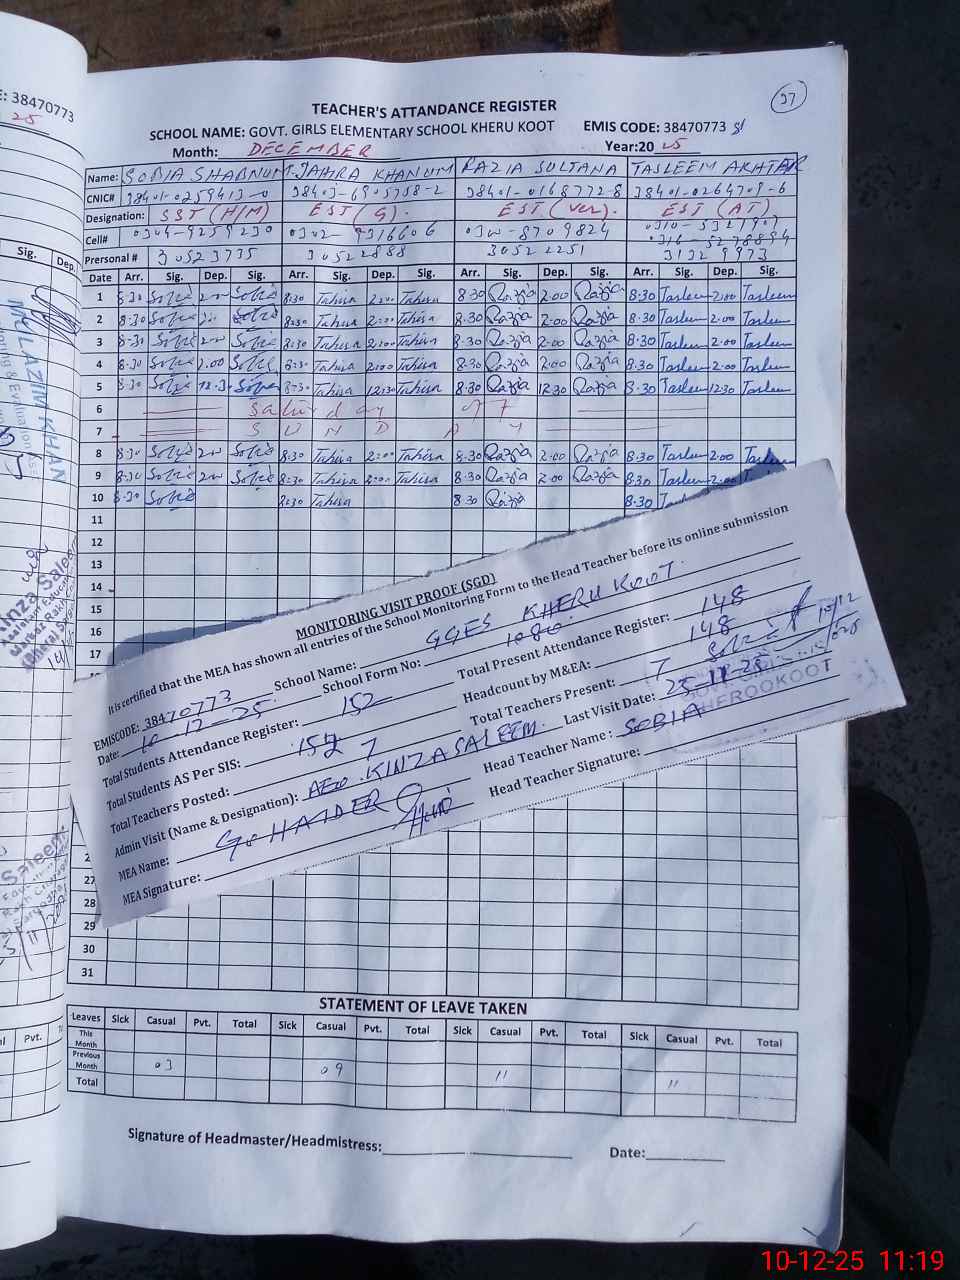 E: 38470773
25
37
TEACHER'S ATTANDANCE REGISTER
SCHOOL NAME: GOVT. GIRLS ELEMENTARY SCHOOL KHERU KOOT EMIS CODE: 38470773
Month: DECEMBER Year:2025
Name: SOBIA SHABNUM T. JAHRA KHANUM RAZIA SULTANA TASLEEM AKHTAR
CNIC# 38401-0259413-0 38403-6905758-2 38401-0168772-8 38401-0264709-6
Designation: SST (H/M) EST (G). EST (Ver). EST (AT)
Cell# 0304-9259230 0302-9316606 0300-8709824 0310-5327907
0316-5278894
Prersonal # 30523735 30522888 30522251 31329973
Date Arr. Sig. Dep. Sig. Arr. Sig. Dep. Sig. Arr. Sig. Dep. Sig. Arr. Sig. Dep. Sig.
1 8:30 Sobia Sobia 8:30 Tahira 2:00 Tahira 8.30 Razia 2.00 Razia 8.30 Tasleem 2.00 Tasleem
2 8.30 Sobia Sobia 8:30 Tahira 2:00 Tahira 8.30 Razia 2.00 Razia 8.30 Tasleem 2.00 Tasleem
3 8.30 Sobia Sobia 8:30 Tahira 2:00 Tahira 8.30 Razia 2.00 Razia 8.30 Tasleem 2.00 Tasleem
4 8.30 Sobia 2.00 Sobia 8:30 Tahira 2:00 Tahira 8.30 Razia 2.00 Razia 8.30 Tasleem 2.00 Tasleem
5 8.30 Sobia 12.30 Sobia 8:30 Tahira 12:30 Tahira 8.30 Razia 12.30 Razia 8.30 Tasleem 12.30 Tasleem
6 Saturday
7 SUNDAY
8 8.30 Sobia Sobia 8:30 Tahira 2:00 Tahira 8.30 Razia 2.00 Razia 8.30 Tasleem 2.00 Tasleem
9 8.30 Sobia Sobia 8:30 Tahira 2:00 Tahira 8.30 Razia 2.00 Razia 8.30 Tasleem 2.00
10 8.30 Sobia 8:30 Tahira 8.30 Razia 8.30
11
12
13
14
15
16
17
MONITORING VISIT PROOF (SGD)
It is certified that the MEA has shown all entries of the School Monitoring Form to the Head Teacher before its online submission
EMISCODE: 38470773 School Name: GGES KHERU KOOT.
Date: 10-12-25 School Form No: 1086
Total Students Attendance Register: 152 Total Present Attendance Register: 148
Total Students AS Per SIS: 152 Headcount by M&EA: 148
Total Teachers Posted: 7 Total Teachers Present: 7
Admin Visit (Name & Designation): AEO. KINZA SALEEM. Last Visit Date: 25-11-25
MEA Name: G. HAIDER Head Teacher Name: SOBIA
MEA Signature: Head Teacher Signature:
KHEROOKOOT
27
28
29
30
31
STATEMENT OF LEAVE TAKEN
Leaves Sick Casual Pvt. Total Sick Casual Pvt. Total Sick Casual Pvt. Total Sick Casual Pvt. Total
This Month
Previous Month 03 09 11 11
Total
Signature of Headmaster/Headmistress: Date:
Sig. Dep.
LAZIM KHAN
Pvt.
10-12-25 11:19